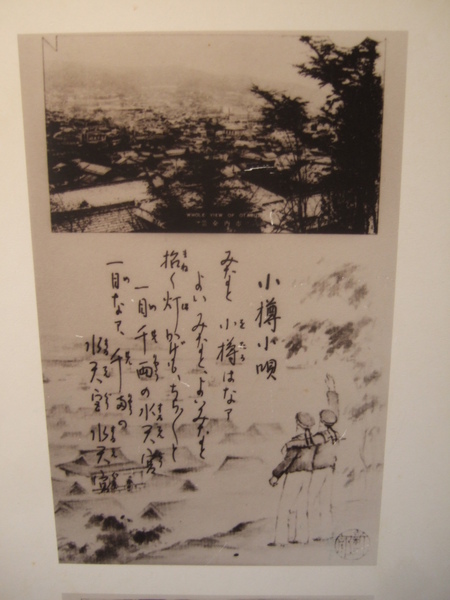 WHOLE VIEW OF
小樽小唄
みなと 小樽はなァ
よいみなとよいみなと
招く灯かげもちら〱と
一目千両の水天宮
一目なァ 千両の
水天宮 水天宮